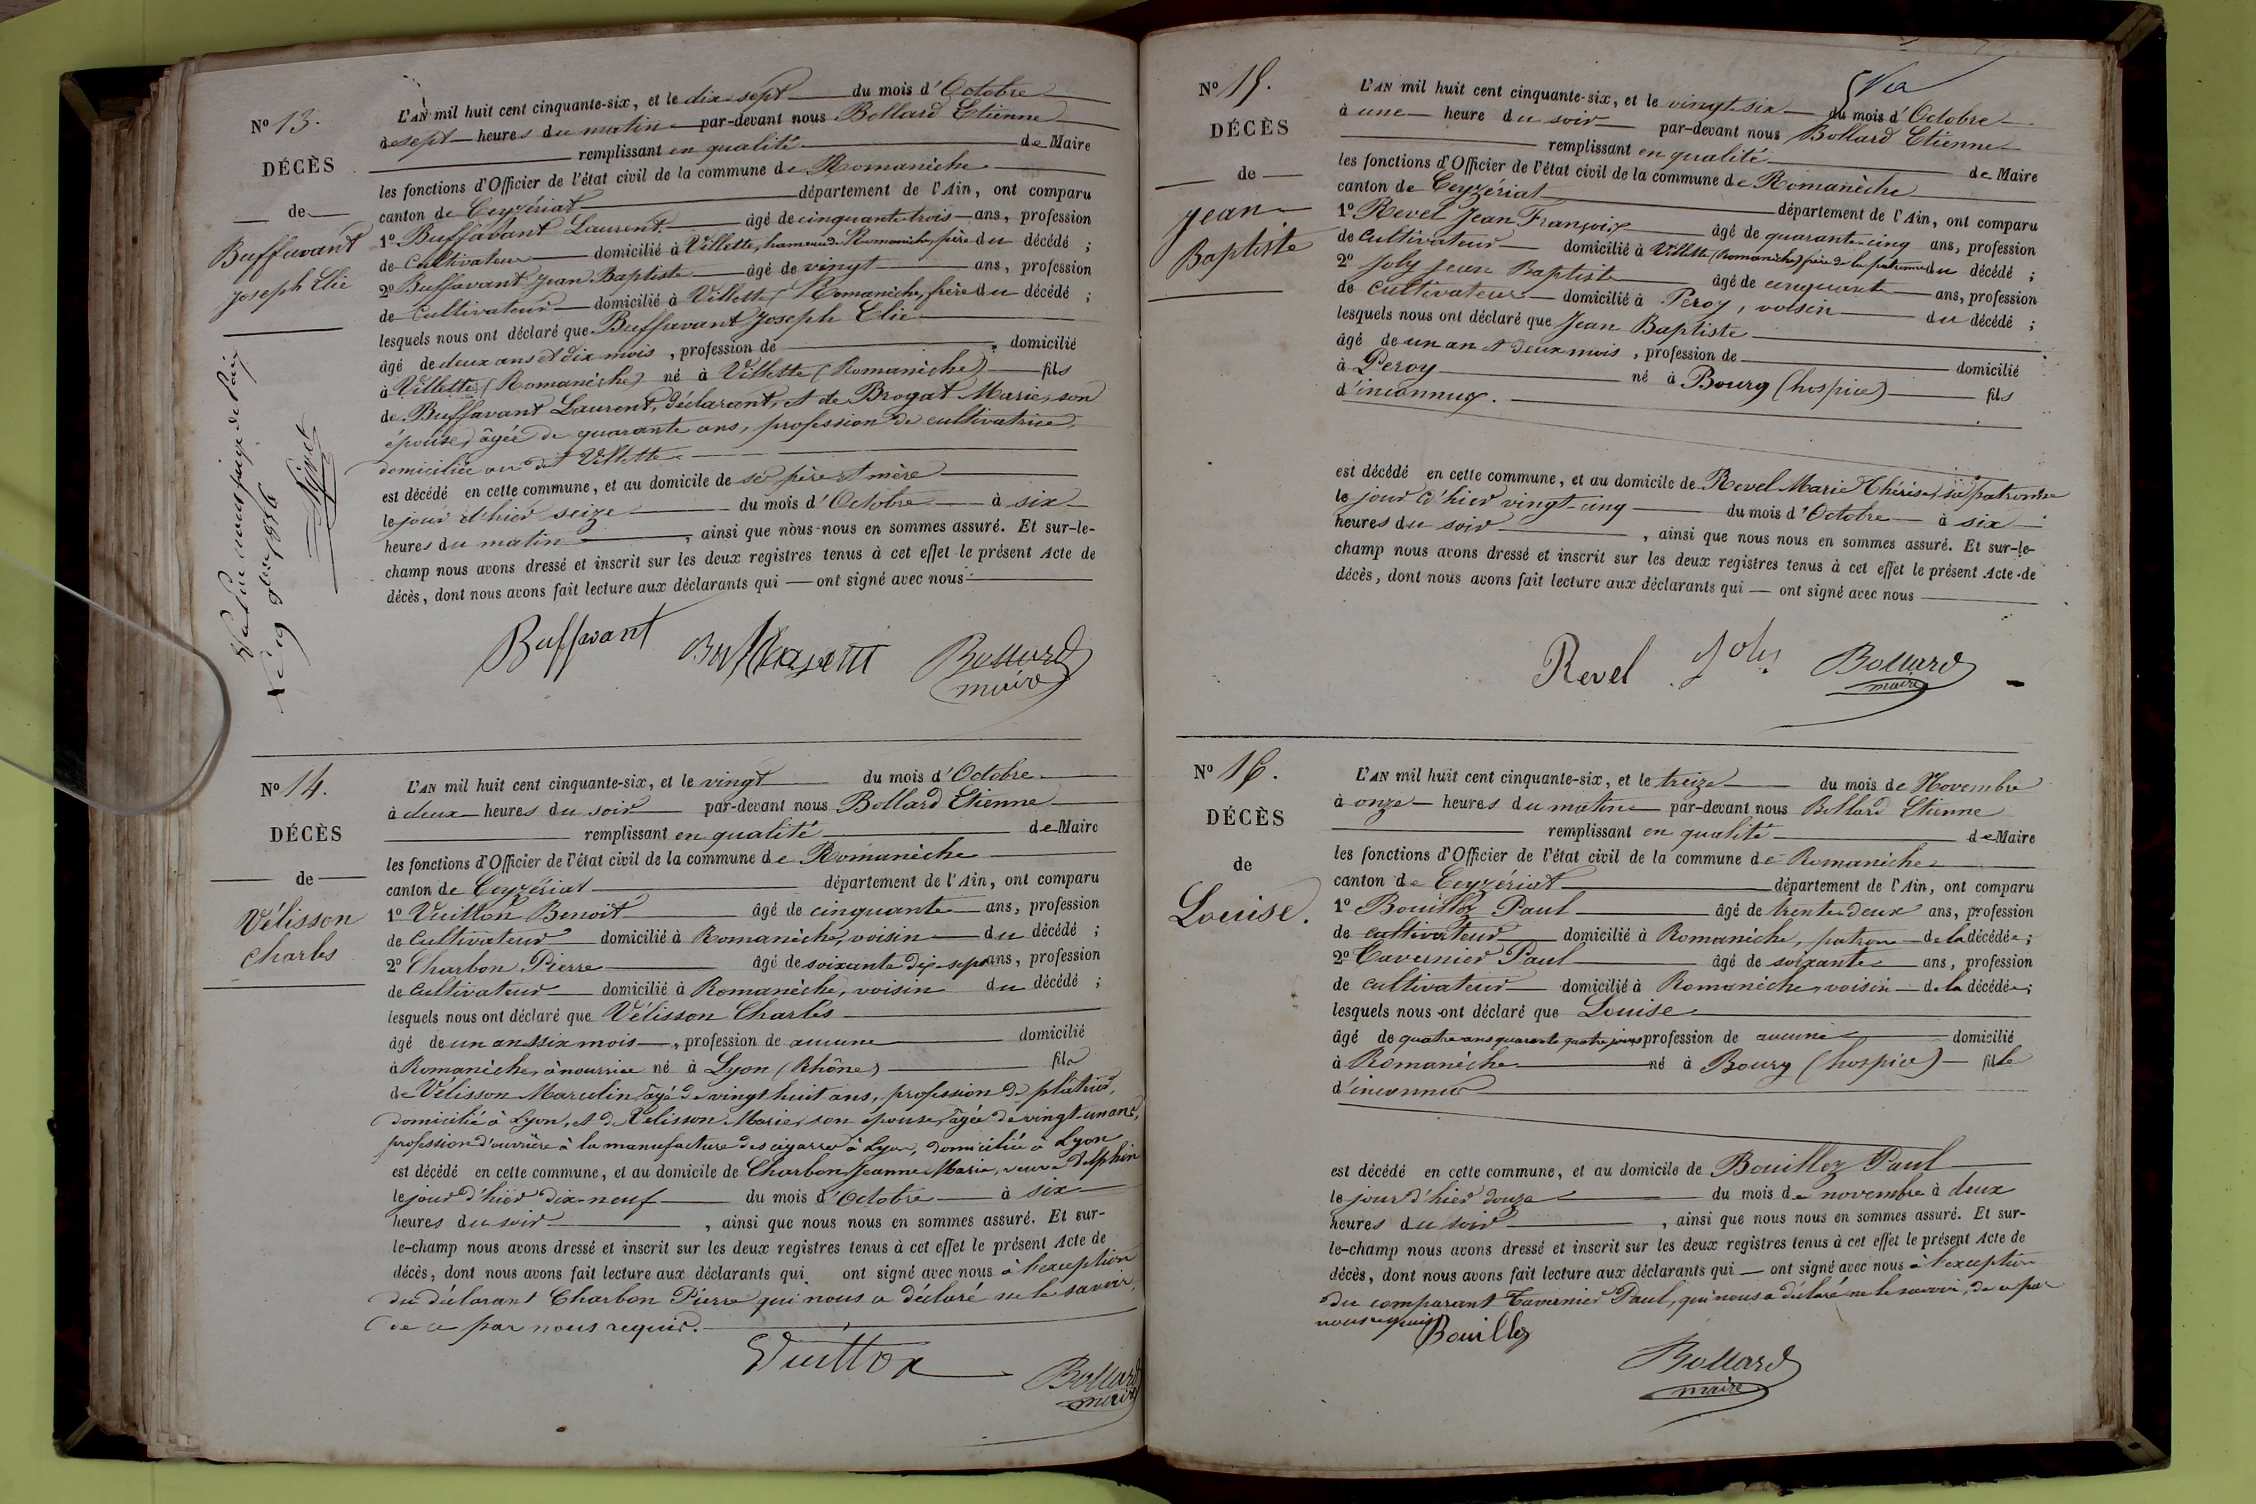 N° 13.
DÉCÈS
de
Buffavant
Joseph Elie
L'AN mil huit cent cinquante-six, et le dix-sept du mois d'Octobre
à sept heures du matin par-devant nous Bollard Etienne
remplissant en qualité de Maire
les fonctions d'Officier de l'état civil de la commune de Romanèche
canton de Ceyzériat département de l'Ain, ont comparu
1° Buffavant Laurent âgé de cinquante-trois ans, profession
de Cultivateur domicilié à Villette, hameau de Romanèche, père du décédé ;
2° Buffavant Jean Baptiste âgé de vingt ans, profession
de Cultivateur domicilié à Villette (Romanèche, frère du décédé ;
lesquels nous ont déclaré que Buffavant Joseph Elie
âgé de deux ans et dix mois, profession de domicilié
à Villette (Romanèche) né à Villette (Romanèche) fils
de Buffavant Laurent, déclarant, et de Brogat Marie, son
épouse, âgée de quarante ans, profession de cultivatrice,
domiciliée au dit Villette
est décédé en cette commune, et au domicile de ses père et mère
le jour d'hier seize du mois d'Octobre à six
heures du matin, ainsi que nous nous en sommes assuré. Et sur-le-
champ nous avons dressé et inscrit sur les deux registres tenus à cet effet le présent Acte de
décès, dont nous avons fait lecture aux déclarants qui ont signé avec nous
Buffavant Buffavant Bollard
maire
Vu par nous juge de Paix
le 19 1856
N° 14.
DÉCÈS
de
Vélisson
Charles
L'AN mil huit cent cinquante-six, et le vingt du mois d'Octobre
à deux heures du soir par-devant nous Bollard Etienne
remplissant en qualité de Maire
les fonctions d'Officier de l'état civil de la commune de Romanèche
canton de Ceyzériat département de l'Ain, ont comparu
1° Vuitton Benoit âgé de cinquante ans, profession
de Cultivateur domicilié à Romanèche, voisin du décédé ;
2° Charbon Pierre âgé de soixante dix-sept ans, profession
de Cultivateur domicilié à Romanèche, voisin du décédé ;
lesquels nous ont déclaré que Vélisson Charles
âgé de un an six mois, profession de aucune domicilié
à Romanèche, à nourrice né à Lyon (Rhône) fils
de Vélisson Marcelin âgé de vingt huit ans, profession de plâtrier,
domicilié à Lyon, et de Vélisson Marie, son épouse, âgée de vingt-un ans,
profession d'ouvrière à la manufacture des cigarres à Lyon, domiciliée à Lyon
est décédé en cette commune, et au domicile de Charbon Jeanne Marie, veuve Delphin
le jour d'hier dix-neuf du mois d'Octobre à six
heures du soir, ainsi que nous nous en sommes assuré. Et sur-
le-champ nous avons dressé et inscrit sur les deux registres tenus à cet effet le présent Acte de
décès, dont nous avons fait lecture aux déclarants qui ont signé avec nous à l'exception
du déclarant Charbon Pierre qui nous a déclaré ne le savoir,
de ce par nous requis.
Vuitton
Bollard
maire
N° 15.
DÉCÈS
de
Jean
Baptiste
Vu
L'AN mil huit cent cinquante-six, et le vingt-six du mois d'Octobre
à une heure du soir par-devant nous Bollard Etienne
remplissant en qualité de Maire
les fonctions d'Officier de l'état civil de la commune de Romanèche
canton de Ceyzériat département de l'Ain, ont comparu
1° Revel Jean François âgé de quarante-cinq ans, profession
de Cultivateur domicilié à Villette (Romanèche) père de la patronne du décédé ;
2° Joly Jean Baptiste âgé de cinquante ans, profession
de Cultivateur domicilié à Peroy, voisin du décédé ;
lesquels nous ont déclaré que Jean Baptiste
âgé de un an et deux mois, profession de domicilié
à Peroy né à Bourg (hospice) fils
d'inconnus.
est décédé en cette commune, et au domicile de Revel Marie Thérèse, sa patronne
le jour d'hier vingt-cinq du mois d'Octobre à six
heures du soir, ainsi que nous nous en sommes assuré. Et sur-le-
champ nous avons dressé et inscrit sur les deux registres tenus à cet effet le présent Acte de
décès, dont nous avons fait lecture aux déclarants qui ont signé avec nous
Revel Joly Bollard
maire
N° 16.
DÉCÈS
de
Louise.
L'AN mil huit cent cinquante-six, et le treize du mois de Novembre
à onze heures du matin par-devant nous Bollard Etienne
remplissant en qualité de Maire
les fonctions d'Officier de l'état civil de la commune de Romanèche
canton de Ceyzériat département de l'Ain, ont comparu
1° Bouillez Paul âgé de trente-deux ans, profession
de cultivateur domicilié à Romanèche, patron de la décédée ;
2° Tavernier Paul âgé de soixante ans, profession
de cultivateur domicilié à Romanèche, voisin de la décédée ;
lesquels nous ont déclaré que Louise
âgé de quatre ans quarante quatre jours profession de aucune domicilié
à Romanèche né à Bourg (hospice) fille
d'inconnus
est décédé en cette commune, et au domicile de Bouillez Paul
le jour d'hier douze du mois de novembre à deux
heures du soir, ainsi que nous nous en sommes assuré. Et sur-
le-champ nous avons dressé et inscrit sur les deux registres tenus à cet effet le présent Acte de
décès, dont nous avons fait lecture aux déclarants qui ont signé avec nous à l'exception
du comparant Tavernier Paul, qui nous a déclaré ne le savoir, de ce par
nous requis
Bouillez
Bollard
maire